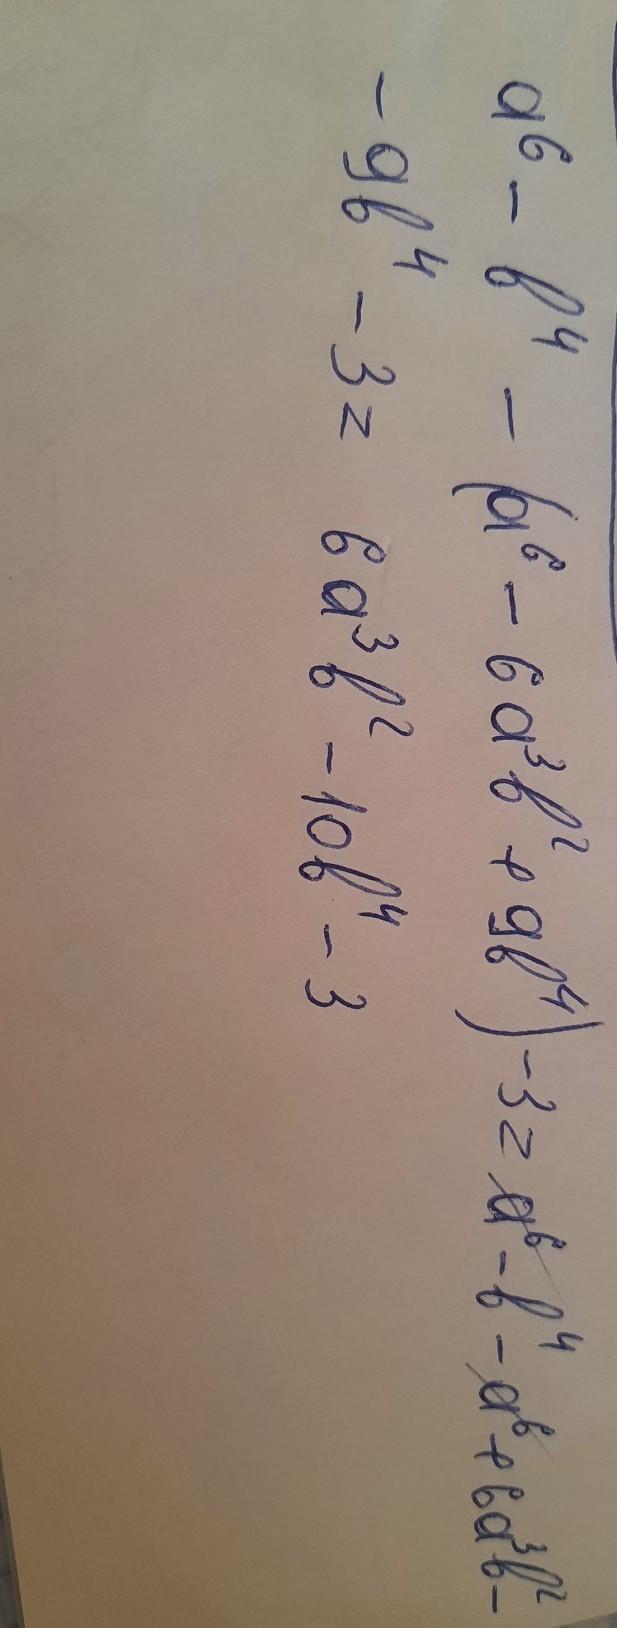 a⁶ - b⁴ - (a⁶ - 6a³b² + 9b⁴) - 3 = a⁶ - b⁴ - a⁶ + 6a³b² -
- 9b⁴ - 3 = 6a³b² - 10b⁴ - 3